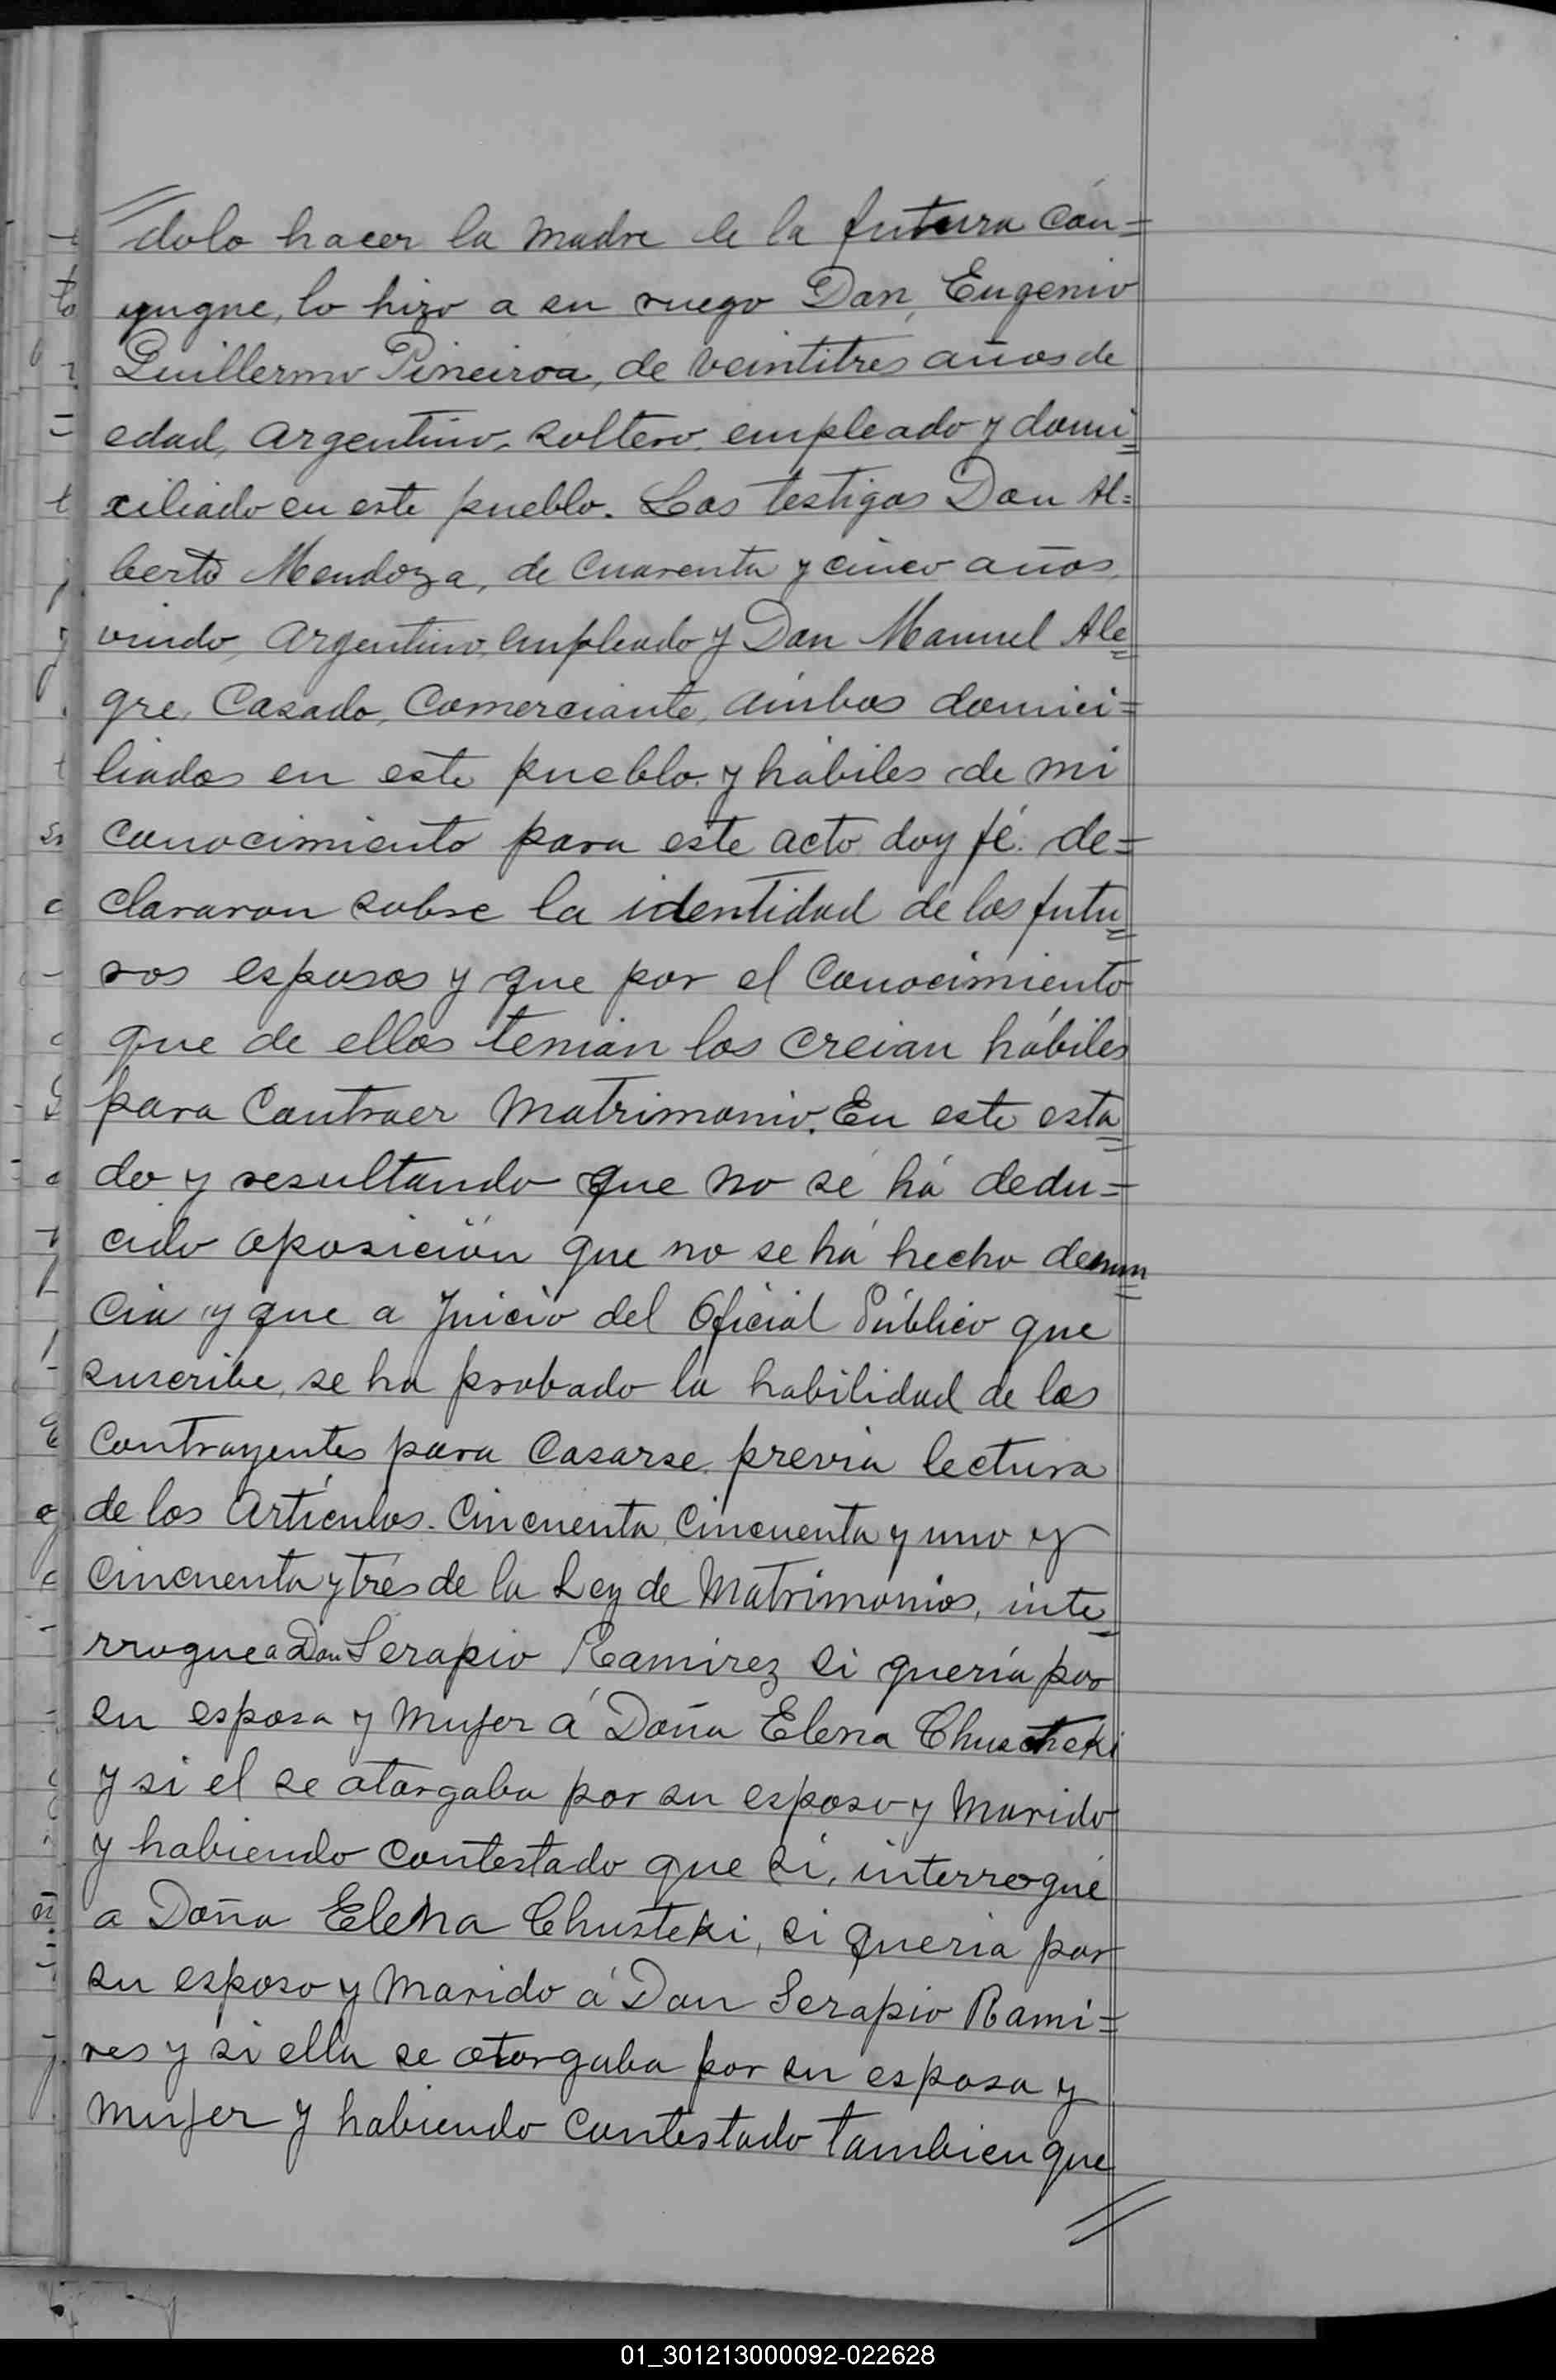 dolo hacer la madre de la futura cón=
yugue, lo hizo a su ruego Don, Eugenio
Guillermo Piñeiroa, de veintitres años de
edad, Argentino, soltero, empleado y domi=
ciliado en este pueblo. Los testigos Don Al=
berto Mendoza, de cuarenta y cinco años,
viudo, Argentino, empleado y Don Manuel Ale=
gre, Casado, Comerciante, ámbos domici=
liados en este pueblo y hábiles de mi
conocimiento para este acto doy fé. de=
clararon sobre la identidad de los futu=
ros esposos y que por el conocimiento
que de ellos tenian los creian hábiles
para Contraer Matrimonio. En este esta=
do y resultando que no sé há dedu=
cido oposición que no se há hecho denun=
cia y que a Juicio del Oficial Público que
suscribe, se ha probado la habilidad de los
Contrayentes para Casarse, previa lectura
de los Artículos. Cincuenta, Cincuenta y uno y
Cincuenta y trés de la Ley de Matrimonios, inte=
rrogue a Don Serapio Ramirez si quería por
su esposa y Mujer á Doña Elena Chusteki
y si el se otorgaba por su esposo y Marido
y habiendo Contestado que si, interrogué
a Doña Elena Chusteki, si queria por
su esposo y Marido á Don Serapio Rami=
res y si ella se otorgaba por su esposa y
Mujer y habiendo Contestado tambien que
01_301213000092-022628